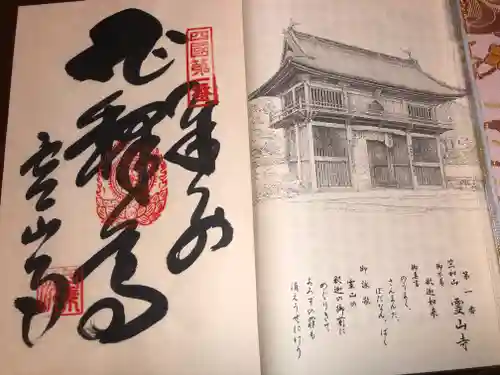 第一番 霊山寺
竺和山
御本尊
釈迦如来
御真言
のうまく、
さんまんだ、
ぼだなん、ばく
御詠歌
霊山の
釈迦の御前に
めぐりきて
よろずの罪も
消えうせにけり
四國第一番
奉納
霊山寺